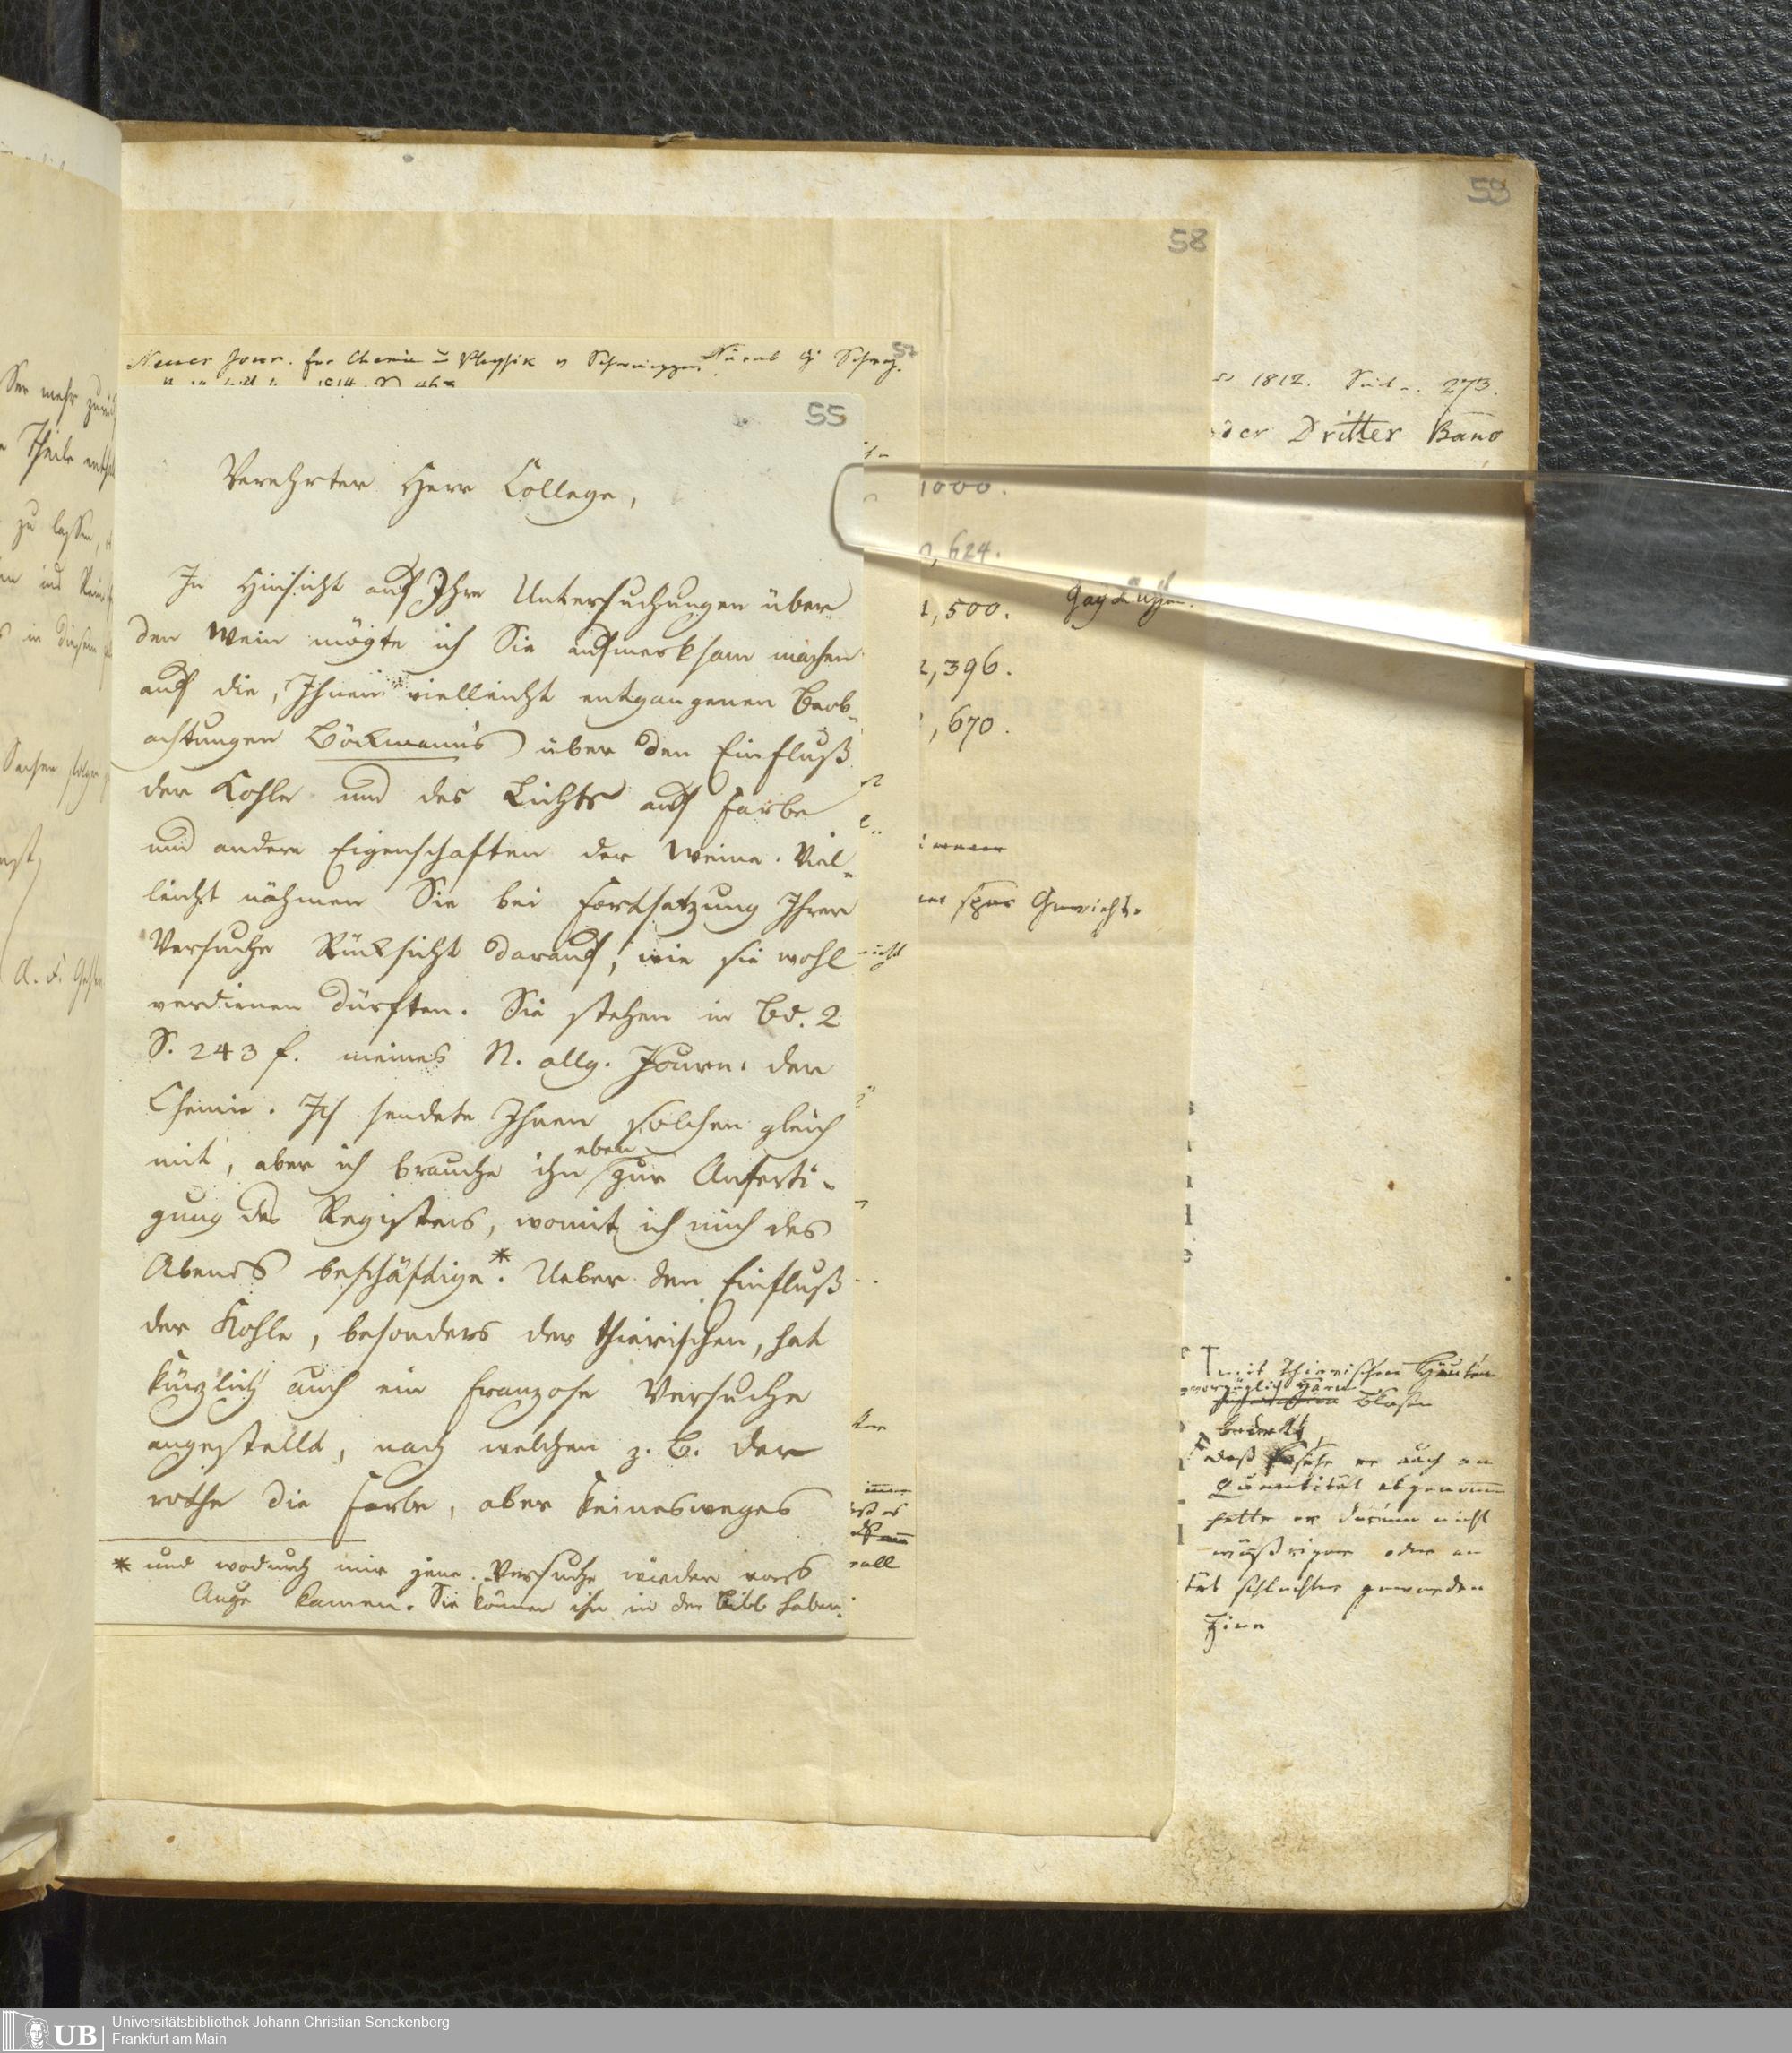 59
58
57
Neues Jour. für Chemie u Physik v Schweigger Nürnb bei Schrag.
1812. Seite. 273.
der Dritter Band
55
Verehrter Herr College,
In Hinsicht auf Ihre Untersuchungen über
den Wein mögte ich Sie aufmerksam machen
auf die, Ihnen vielleicht entgangenen Beob-
achtungen Böckmann's über den Einfluß
der Kohle und des Lichts auf Farbe
und andere Eigenschaften der Weine. Viel-
leicht nähmen Sie bei Fortsetzung Ihrer
Versuche Rücksicht darauf, wie sie wohl
verdienen dürften. Sie stehen in Bd. 2
S. 243 f. meines N. allg. Journ. der
Chemie. Ich sendete Ihnen solchen gleich
mit, aber ich brauche ihn eben zur Anferti-
gung des Registers, womit ich mich des
Abends beschäftige*. Ueber den Einfluß
der Kohle, besonders der thierischen, hat
kürzlich auch ein Franzose Versuche
angestellt, nach welchen z. B. der
rothe die Farbe, aber keinesweges
* und wodurch mir jene Versuche wieder vors
Auge kamen. Sie können ihn in der Bibl haben.
1000.
,624.
1,500.
2,396.
,670.
Gewicht.
mit thierischen Häuten
vorzüglich Harn
Blase
bedeckt
daß er auch an
Quantität abgenommen
hatte er darum nicht
wäßriger oder an
schlechter geworden
A. F.
Universitätsbibliothek Johann Christian Senckenberg
Frankfurt am Main
UB